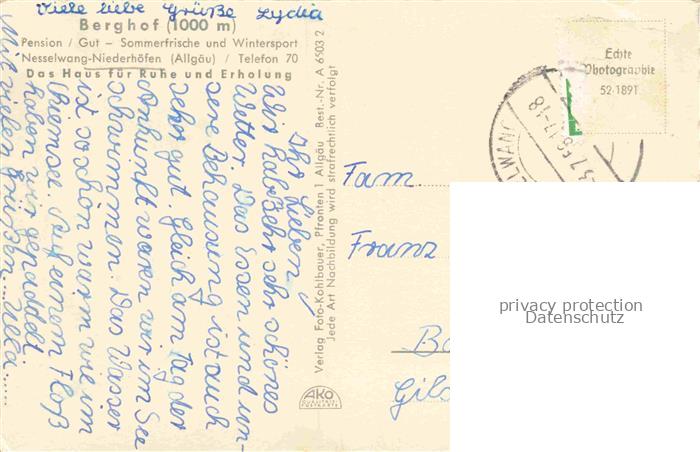 Viele liebe Grüße Lydia
Berghof (1000 m)
Pension / Gut – Sommerfrische und Wintersport
Nesselwang-Niederhöfen (Allgäu) / Telefon 70
Das Haus für Ruhe und Erholung
Ihr Lieben
Wir haben sehr schönes
Wetter. Das Essen und un-
sere Behausung ist auch
sehr gut. Gleich am Tag der
Ankunft waren wir im See
schwimmen. Das Wasser
ist so schön warm wie im
Chiemsee. Auf einem Floß
haben wir gepaddelt
Mit vielen Grüßen... Ulla.....
Verlag Foto-Kohlbauer, Pfronten 1 Allgäu Best.-Nr. A 6503 2
Jede Art Nachbildung wird strafrechtlich verfolgt
AKO
Echte
Photographie
52·1891
LWANG
17-18
Fam
Franz
privacy protection
Datenschutz